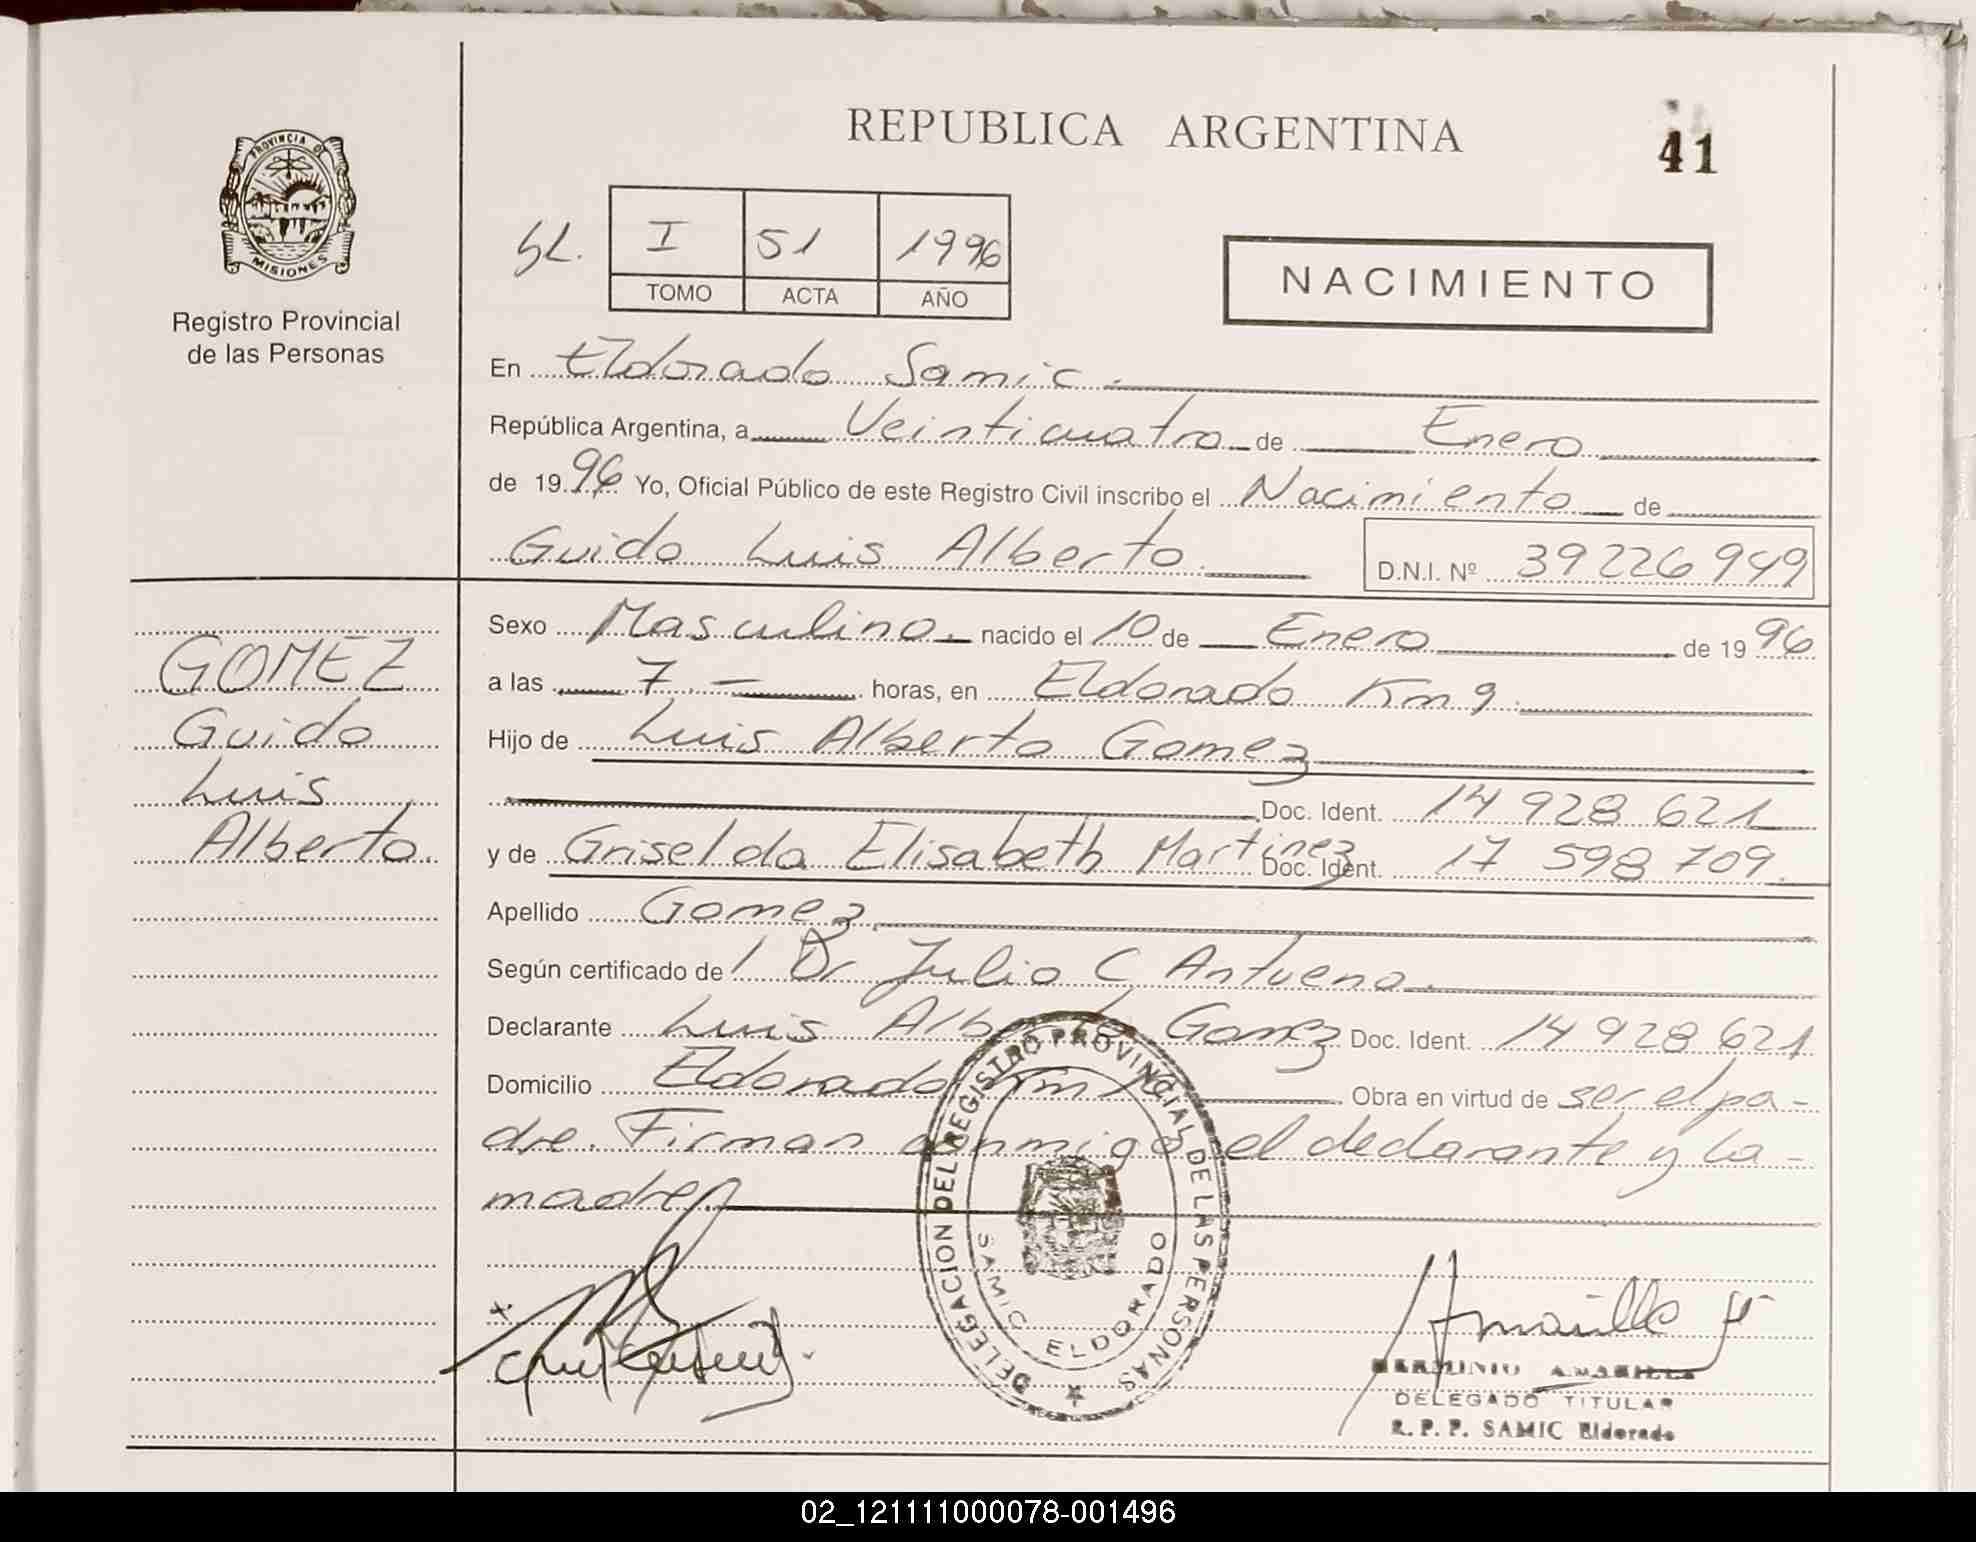 REPUBLICA ARGENTINA
41
PROVINCIA D
MISIONES
Registro Provincial
de las Personas
I 51 1996
TOMO ACTA AÑO
NACIMIENTO
En Eldorado Samic.
República Argentina, a Veinticuatro de Enero
de 1996 Yo, Oficial Público de este Registro Civil inscribo el Nacimiento de
Guido Luis Alberto. D.N.I. Nº 39226949
Sexo Masculino. nacido el 10 de Enero de 1996
a las 7.- horas, en Eldorado Km 9.
Hijo de Luis Alberto Gomez
Doc. Ident. 14 928 621
y de Griselda Elisabeth Martinez Doc. Ident. 17 598 709.
Apellido Gomez.
Según certificado de Dr Julio C Antueno.
Declarante Luis Alberto Gomez Doc. Ident. 14 928 621
Domicilio Eldorado Km Obra en virtud de ser el pa-
dre. Firman conmigo el declarante y la-
madre.
GOMEZ
Guido
Luis
Alberto.
DELEGACION DEL REGISTRO PROVINCIAL DE LAS PERSONAS
SAMIC ELDORADO
HERMINIO AMARILLA
DELEGADO TITULAR
R. P. P. SAMIC Eldorado
02_121111000078-001496